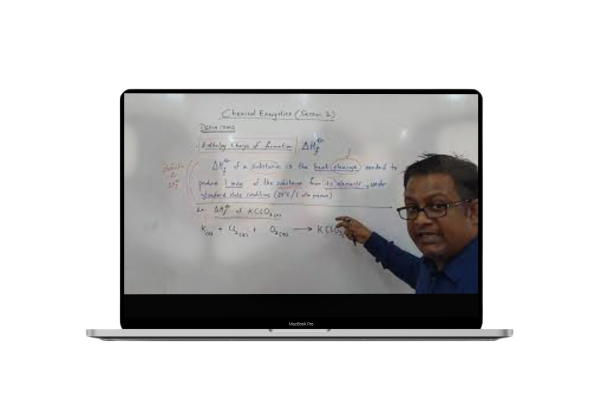 Chemical Energetics (Session 2)
Definitions
Enthalpy change of formation ΔH_f^⊖
ΔH_f^⊖ of a substance is the heat change needed to
produce 1 mole of the substance from its elements, under
standard state conditions (25°C / 1 atm pressure)
Ex:- ΔH_f^⊖ of KClO₃(s)
K(s) + Cl₂(g) + O₂(g) → KClO₃
MacBook Pro